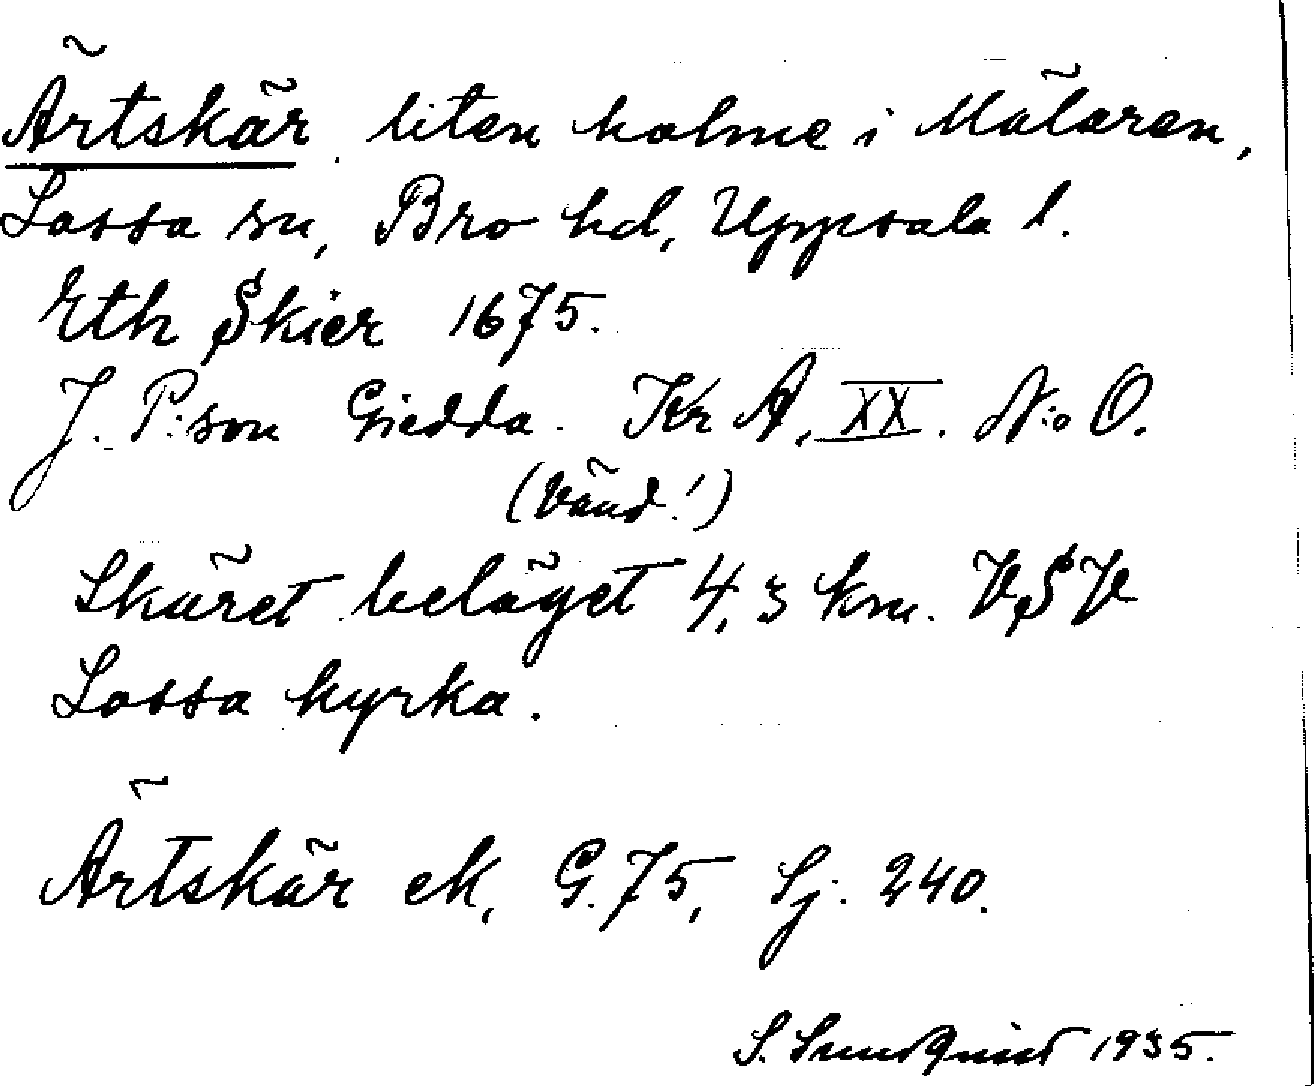 Ärtskär, liten holme i Mälaren,
Lossa sn, Bro hd, Uppsala l.
Eth Skier 1675.
J. P:son Giedda. Kr A, XX. N:o O.
(Vänd!)
Skäret beläget 4,3 km. VSV
Lossa kyrka.
Ärtskär ek, G. 75, Sj. 240.
S. Sundquist 1935.